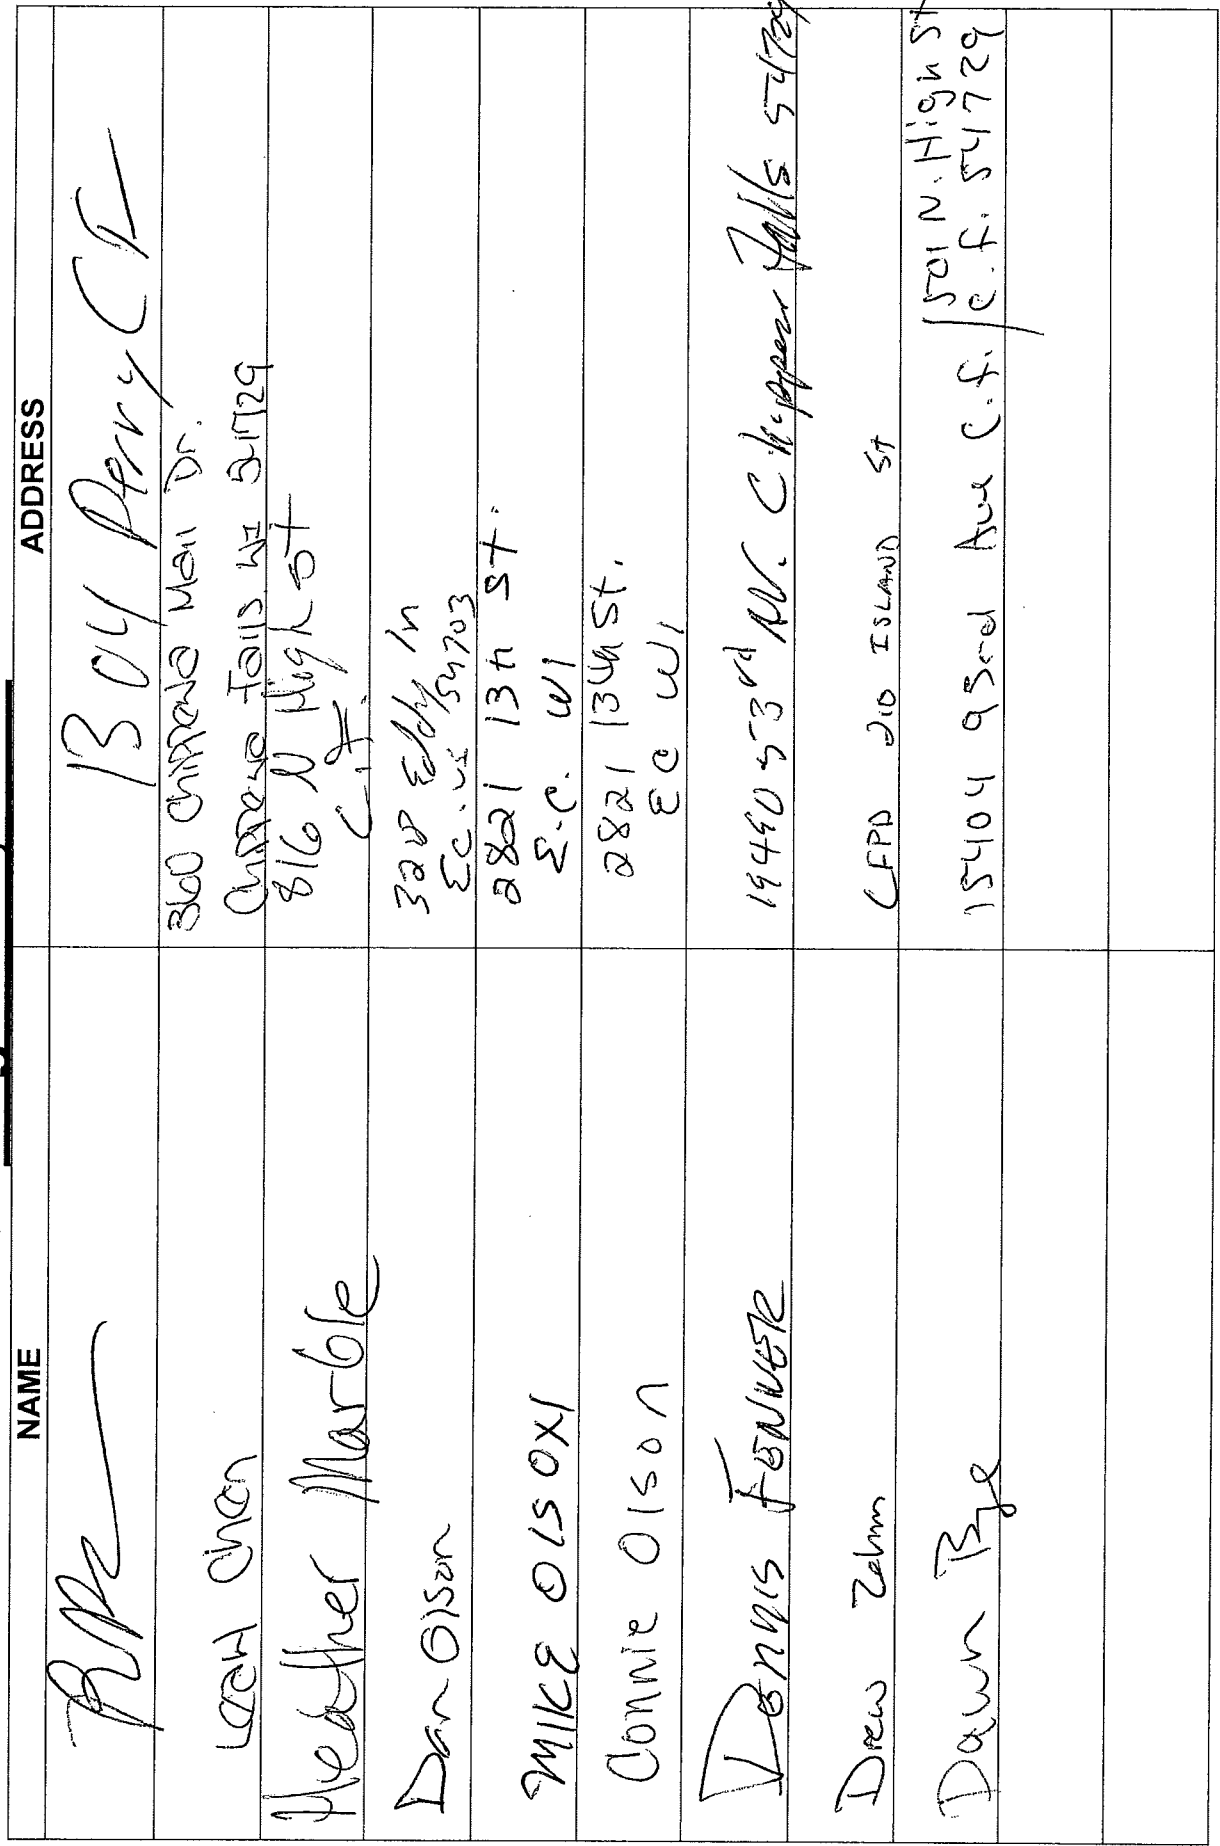 NAME ADDRESS
1304 Perry CF
Leah Chron 360 Chippewa Mall Dr.
Chippewa Falls WI 54729
Heather Marble 816 N High St
C.F.
Dan Olson 328 Eddy ln
Ec. wi 54703
MIKE OlSON 2821 13th St.
E.C. WI
Connie Olson 2821 13th St.
EC WI
Dennis FERNER 19490 53rd AV. Chippewa Falls 54729
Drew Zehm CFPD 210 ISLAND St
Dawn Bye 15404 93rd Ave C.F. / 501 N. High St
C.F. 54729